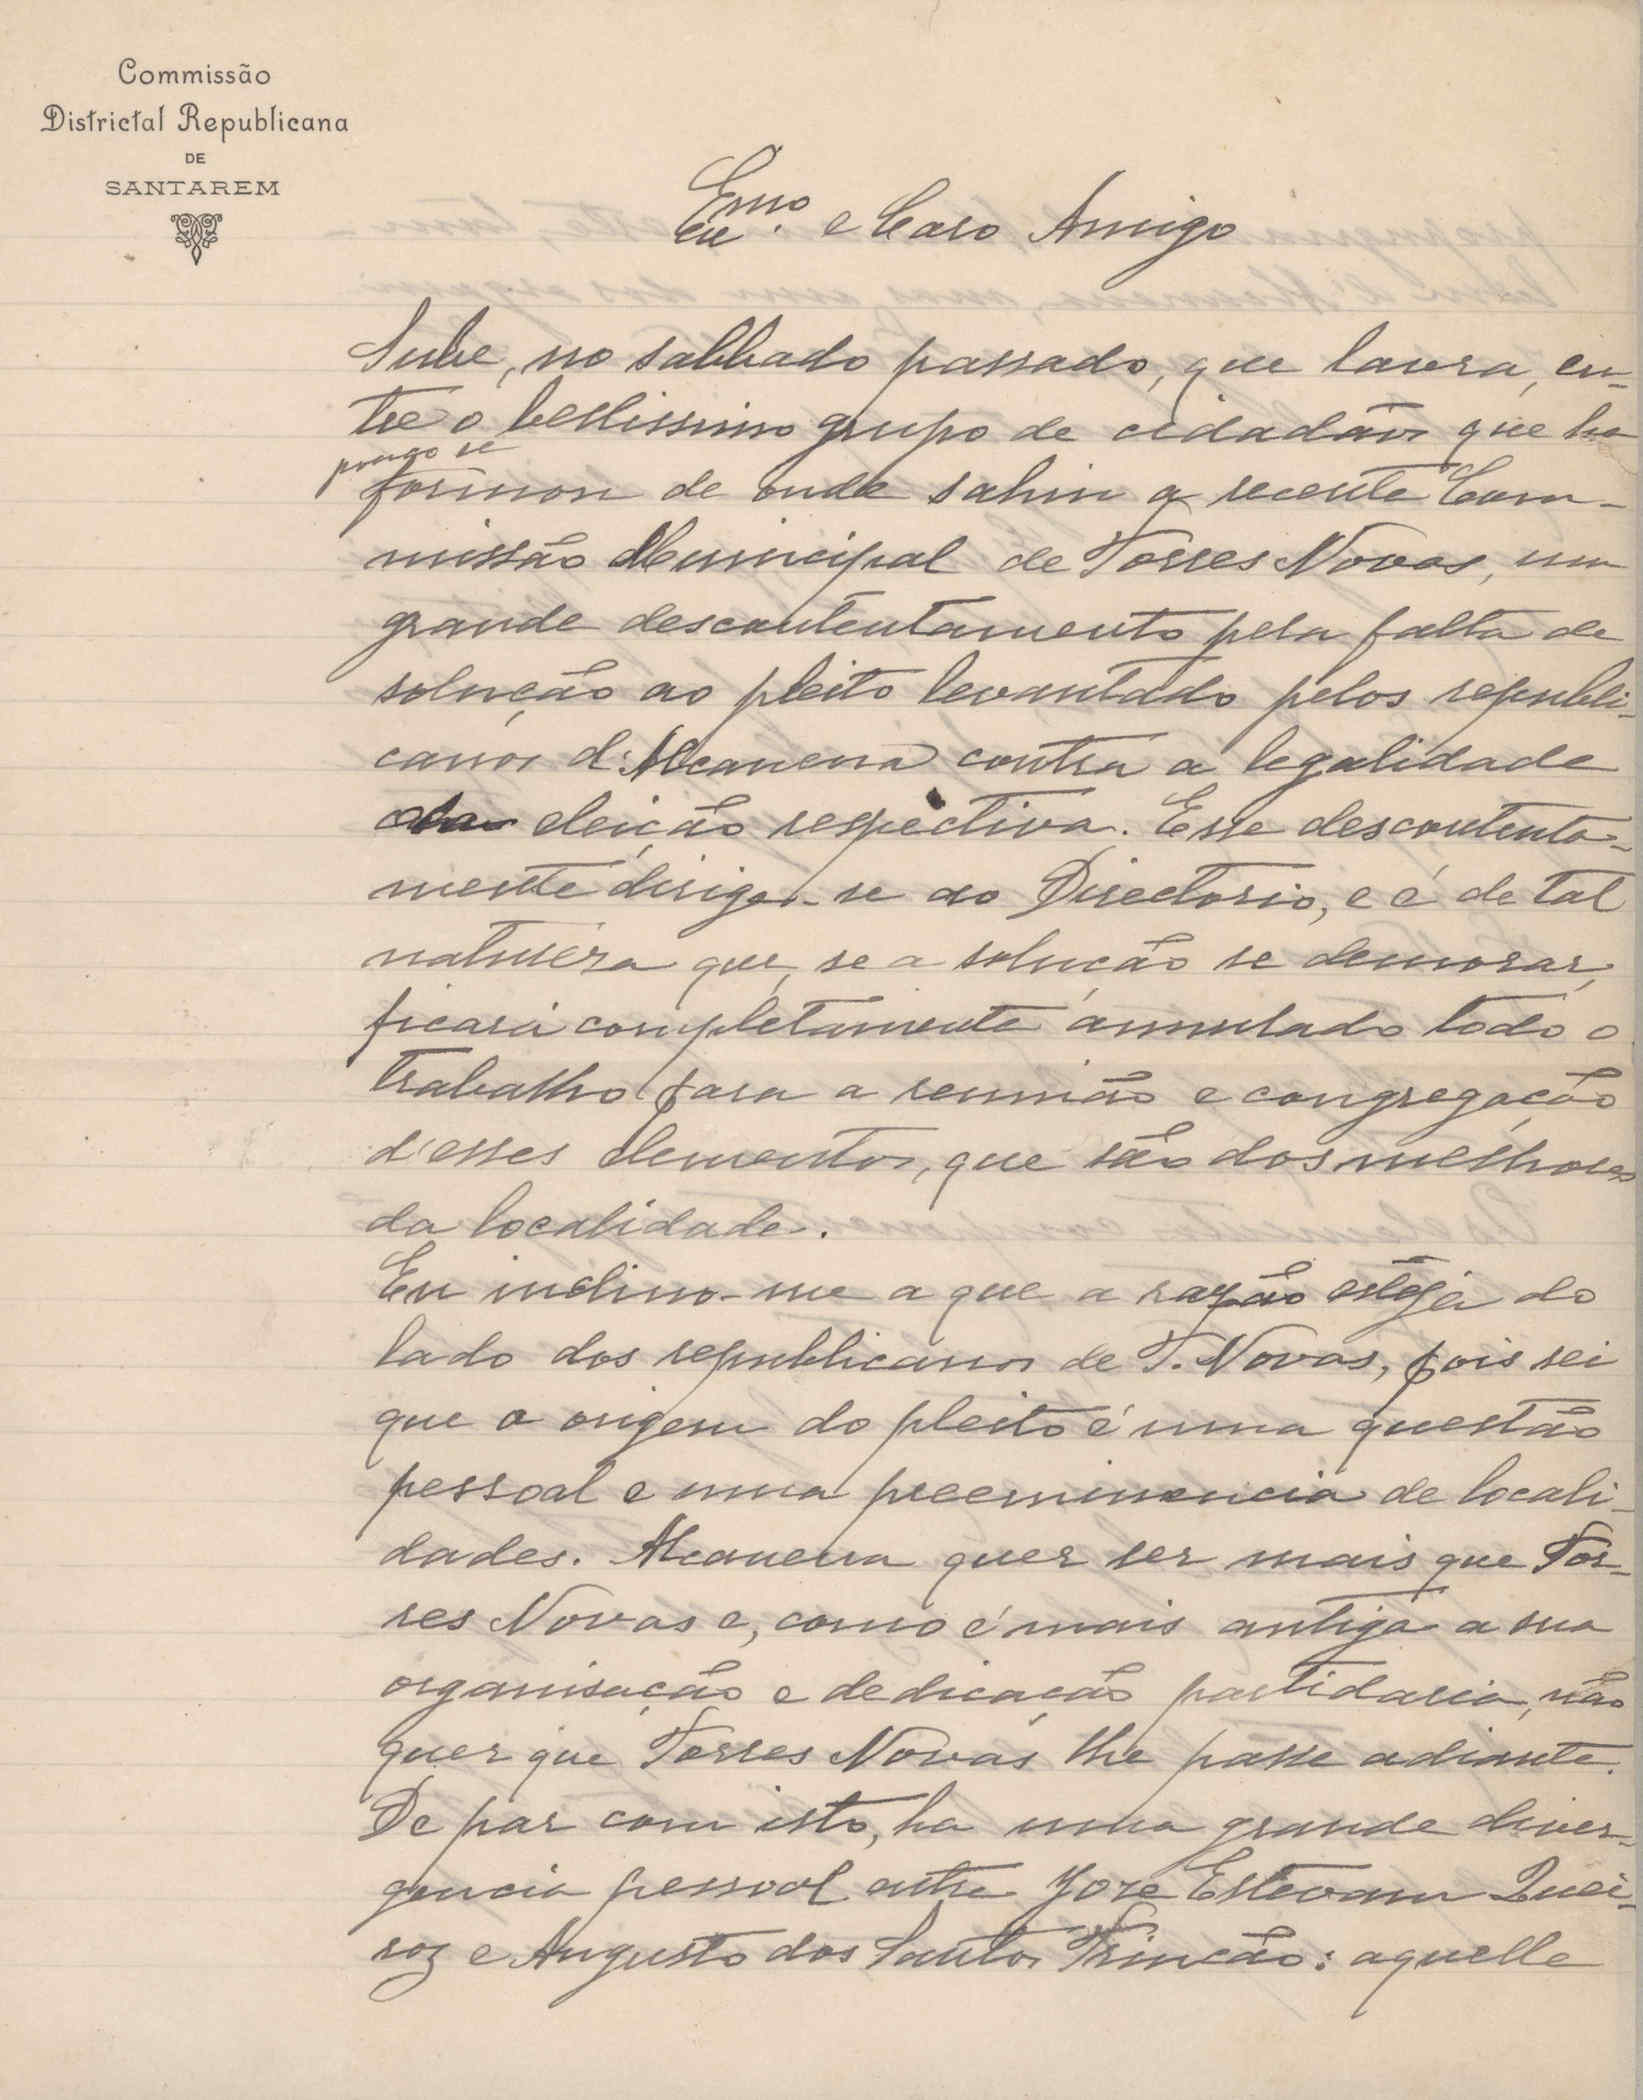 Commissão
Districtal Republicana
DE
SANTAREM
Exmo. e Caro Amigo
Sube, no sabbado passado, que lavra, en-
tre o bellissimo grupo de cidadãos que ha
pouco se
formou de onde sahiu a recente Com-
missão Municipal de Torres Novas, um
grande descontentamento pela falta de
solução ao pleito levantado pelos republi-
canos d'Alcanena contra a legalidade
da eleição respectiva. Esse descontenta-
mento dirige-se ao Directorio, e é de tal
naturêsa que, se a solução se demorar,
ficará completamente annulado todo o
trabalho para a reunião e congregação
d'esses elementos, que são dos melhores
da localidade.
Eu inclino-me a que a razão esteja do
lado dos republicanos de T. Novas, pois sei
que a origem do pleito é uma questão
pessoal e uma preeminencia de locali-
dades. Alcanena quer ser mais que Tor-
res Novas e, como é mais antiga a sua
organisação e dedicação partidaria, não
quer que Torres Novas lhe passe adiante.
De par com isto, ha uma grande diver-
gencia pessoal entre José Estevam Quei-
roz e Augusto dos Santos Trincão: aquelle